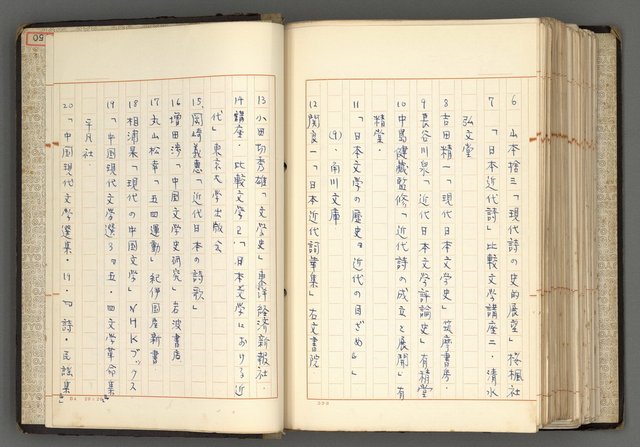 6 山本捨三「現代詩の史的展望」桜楓社
7 「日本近代詩」比較文学講座二・清水
弘文堂
8 吉田精一「現代日本文学史」筑摩書房・
9 長谷川泉「近代日本文学評論史」有精堂
10 中島健蔵監修「近代詩の成立と展開」有
精堂・
11 「日本文学の歴史 近代の目ざめ」
(9)・角川文庫
12 関良一「日本近代詞華集」右文書院
13 小田切秀雄「文学史」東洋経済新報社
14 講座・比較文学2・「日本文学における近
代」東京大学出版会
15 岡崎義恵「近代日本の詩歌」
16 増田渉「中国文学史研究」岩波書店
17 丸山松幸「五四運動」紀伊国屋新書
18 相浦杲「現代の中国文学」NHKブックス
19 「中国現代文学選3・五・四文学革命集」
平凡社
20 「中国現代文学選集・19・詩・民謡集」
50